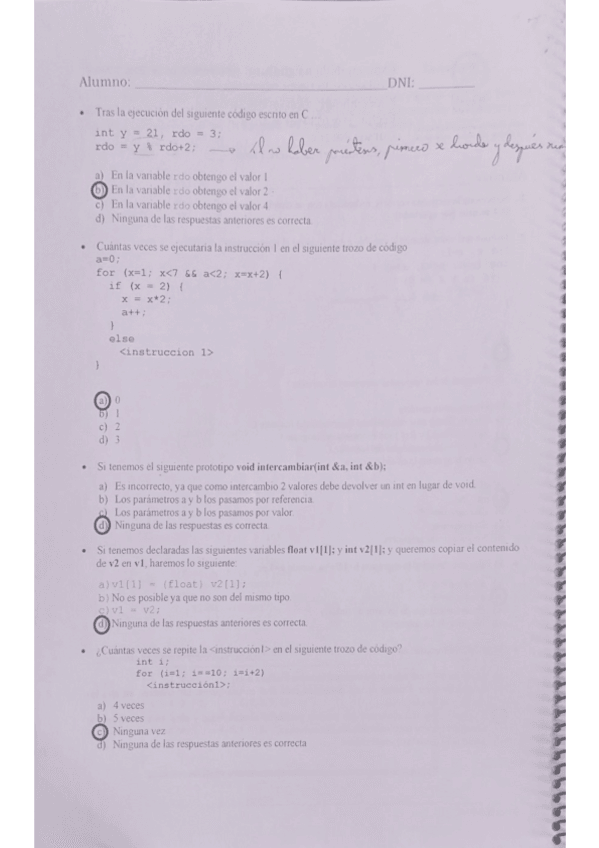 Alumno: ____________________ DNI: ________
• Tras la ejecución del siguiente código escrito en C...
int y = 21, rdo = 3;
rdo = y % rdo+2; → Al no haber paréntesis, primero se hace y después
a) En la variable rdo obtengo el valor 1
b) En la variable rdo obtengo el valor 2
c) En la variable rdo obtengo el valor 4
d) Ninguna de las respuestas anteriores es correcta.
• Cuántas veces se ejecutaría la instrucción 1 en el siguiente trozo de código
a=0;
for (x=1; x<7 && a<2; x=x+2) {
if (x = 2) {
x = x*2;
a++;
}
else
<instruccion 1>
}
a) 0
b) 1
c) 2
d) 3
• Si tenemos el siguiente prototipo void intercambiar(int &a, int &b);
a) Es incorrecto, ya que como intercambio 2 valores debe devolver un int en lugar de void.
b) Los parámetros a y b los pasamos por referencia.
c) Los parámetros a y b los pasamos por valor.
d) Ninguna de las respuestas es correcta.
• Si tenemos declaradas las siguientes variables float v1[1]; y int v2[1]; y queremos copiar el contenido
de v2 en v1, haremos lo siguiente:
a) v1[1] = (float) v2[1];
b) No es posible ya que no son del mismo tipo.
c) v1 = v2;
d) Ninguna de las respuestas anteriores es correcta.
• ¿Cuántas veces se repite la <instrucción1> en el siguiente trozo de código?
int i;
for (i=1; i==10; i=i+2)
<instrucción1>;
a) 4 veces
b) 5 veces
c) Ninguna vez
d) Ninguna de las respuestas anteriores es correcta